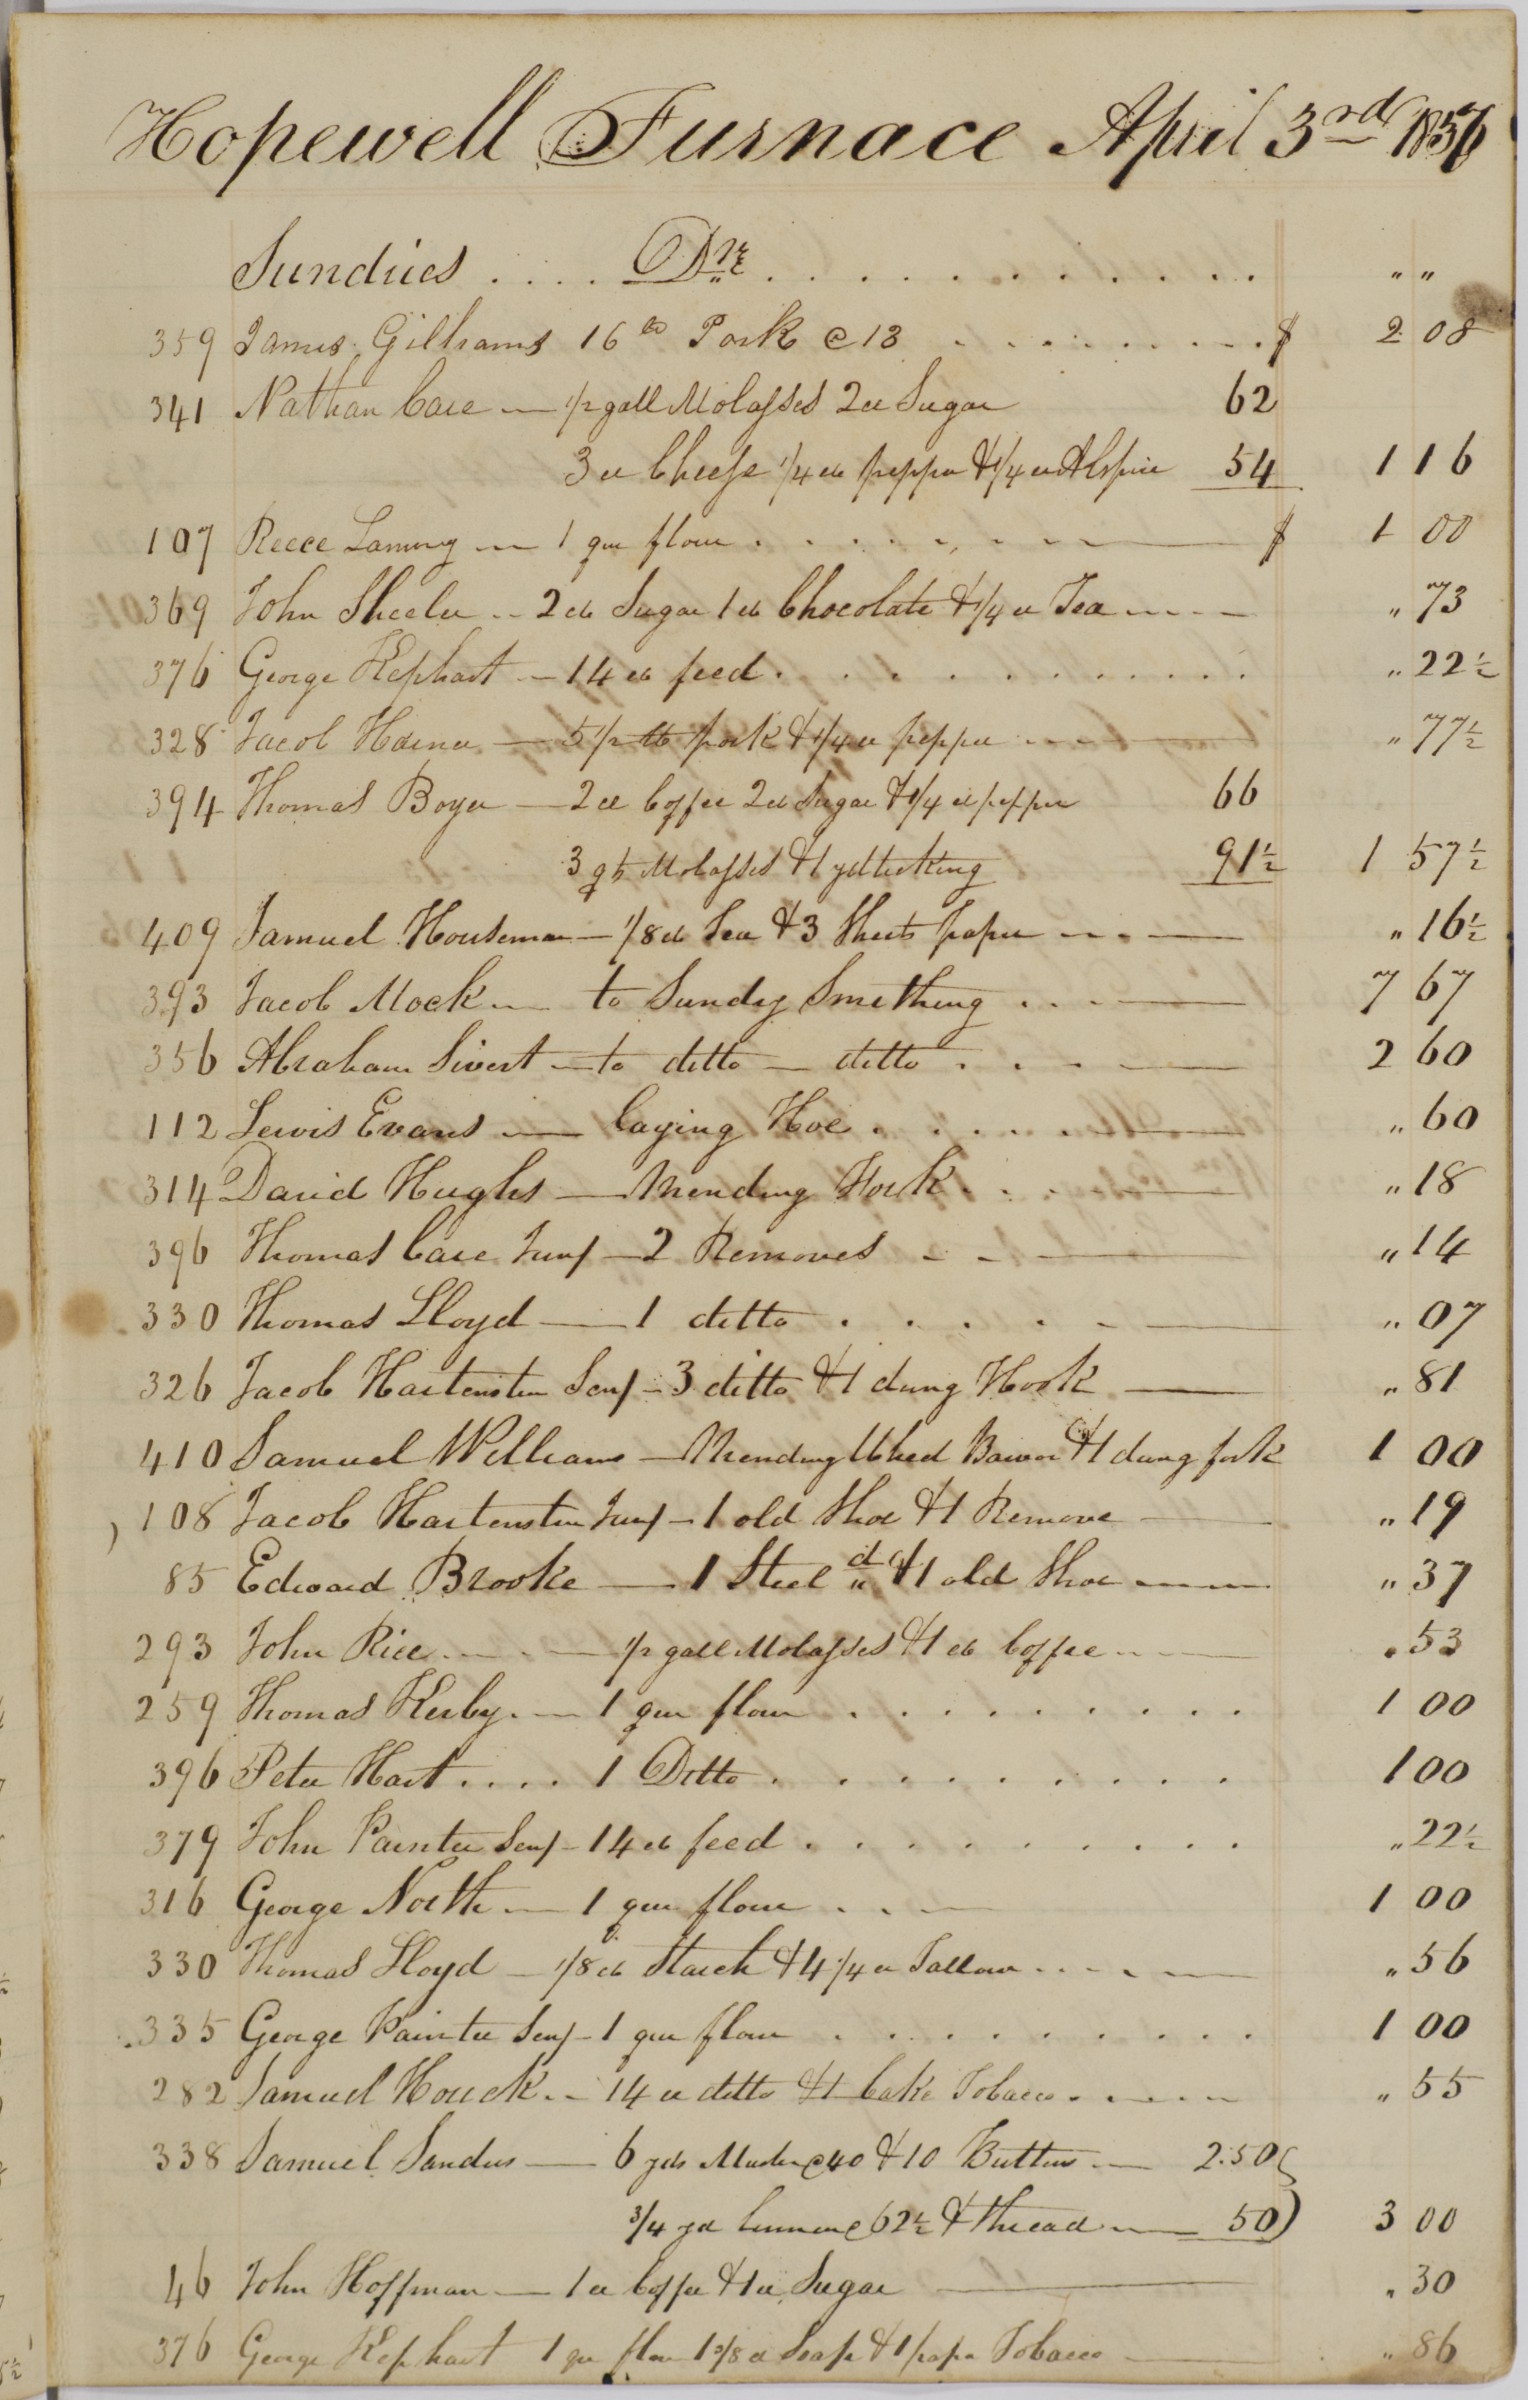 Hopewell Furnace April 3rd 1836
Sundries .... Drs ............ " "
359 James Gilhams 16 lb Pork @ 13 ......... $ 2 08
341 Nathan Care — 1/2 gall Molasses 2 lb Sugar 62
3 lb Cheese 1/4 lb pepper & 1/4 lb Alspice 54 1 16
107 Reece Laming — 1 qur flour ....... $ 1 00
369 John Sheeler — 2 lb Sugar 1 lb Chocolate & 1/4 lb Tea " 73
376 George Kephart — 14 lb feed .......... " 22 1/2
328 Jacob Hainer — 5 1/2 lb pork & 1/4 lb pepper " 77 1/2
394 Thomas Boyer — 2 lb Coffee 2 lb Sugar & 1/4 lb pepper 66
3 qts Molasses & 1 yd ticking 91 1/2 1 57 1/2
409 Samuel Houseman — 1/8 lb Tea & 3 Sheets paper " 16 1/2
393 Jacob Mock — to Sundy Smithing ... 7 67
356 Abraham Sivert — to ditto — ditto ... 2 60
112 Lewis Evans — laying Hoe ..... " 60
314 David Hughes — Mending Hook ... " 18
396 Thomas Care Junr — 2 Removes " 14
330 Thomas Lloyd — 1 ditto ..... " 07
326 Jacob Hartensten Senr — 3 ditto & 1 dung Hook " 81
410 Samuel Williams — Mending Wheel Barrow & 1 dung fork 1 00
108 Jacob Hartensten Junr — 1 old Shoe & 1 Remove " 19
85 Edward Brooke — 1 Steel do & 1 old Shoe " 37
293 John Rice — 1/2 gall Molasses & 1 lb Coffee " 53
259 Thomas Kerby — 1 qur flour ......... 1 00
396 Peter Hart .... 1 Ditto .......... 1 00
379 John Painter Senr — 14 lb feed .......... " 22 1/2
316 George North — 1 qur flour ... 1 00
330 Thomas Lloyd — 1/8 lb Starch & 4 1/4 lb Tallow " 56
335 George Painter Senr — 1 qur flour .......... 1 00
282 Samuel Houck — 14 lb ditto & 1 Cake Tobacco " 55
338 Samuel Sanders — 6 yds Muslin @ 40 & 10 Buttons — 2.50
3/4 yd linnen @ 62 1/2 & thread — 50 3 00
46 John Hoffman — 1 lb Coffee & 1 lb Sugar " 30
376 George Kephart 1 qur flour 1 3/8 lb Soap & 1 paper Tobacco " 86